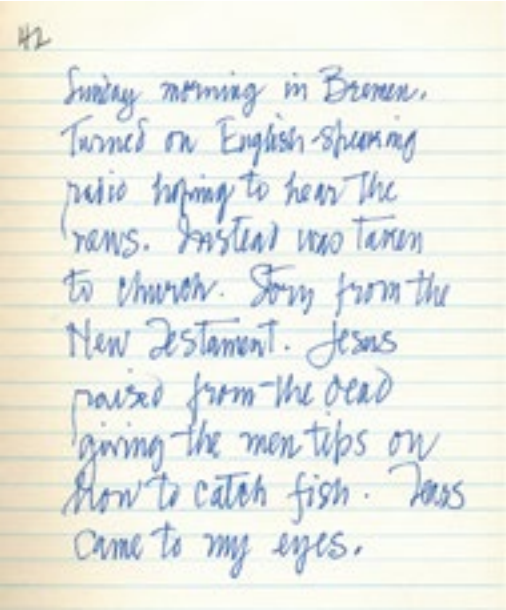 42
Sunday morning in Bremen.
Turned on English-speaking
radio hoping to hear the
news. Instead was taken
to church. Story from the
New Testament. Jesus
raised from the dead
giving the men tips on
how to catch fish. Tears
came to my eyes.